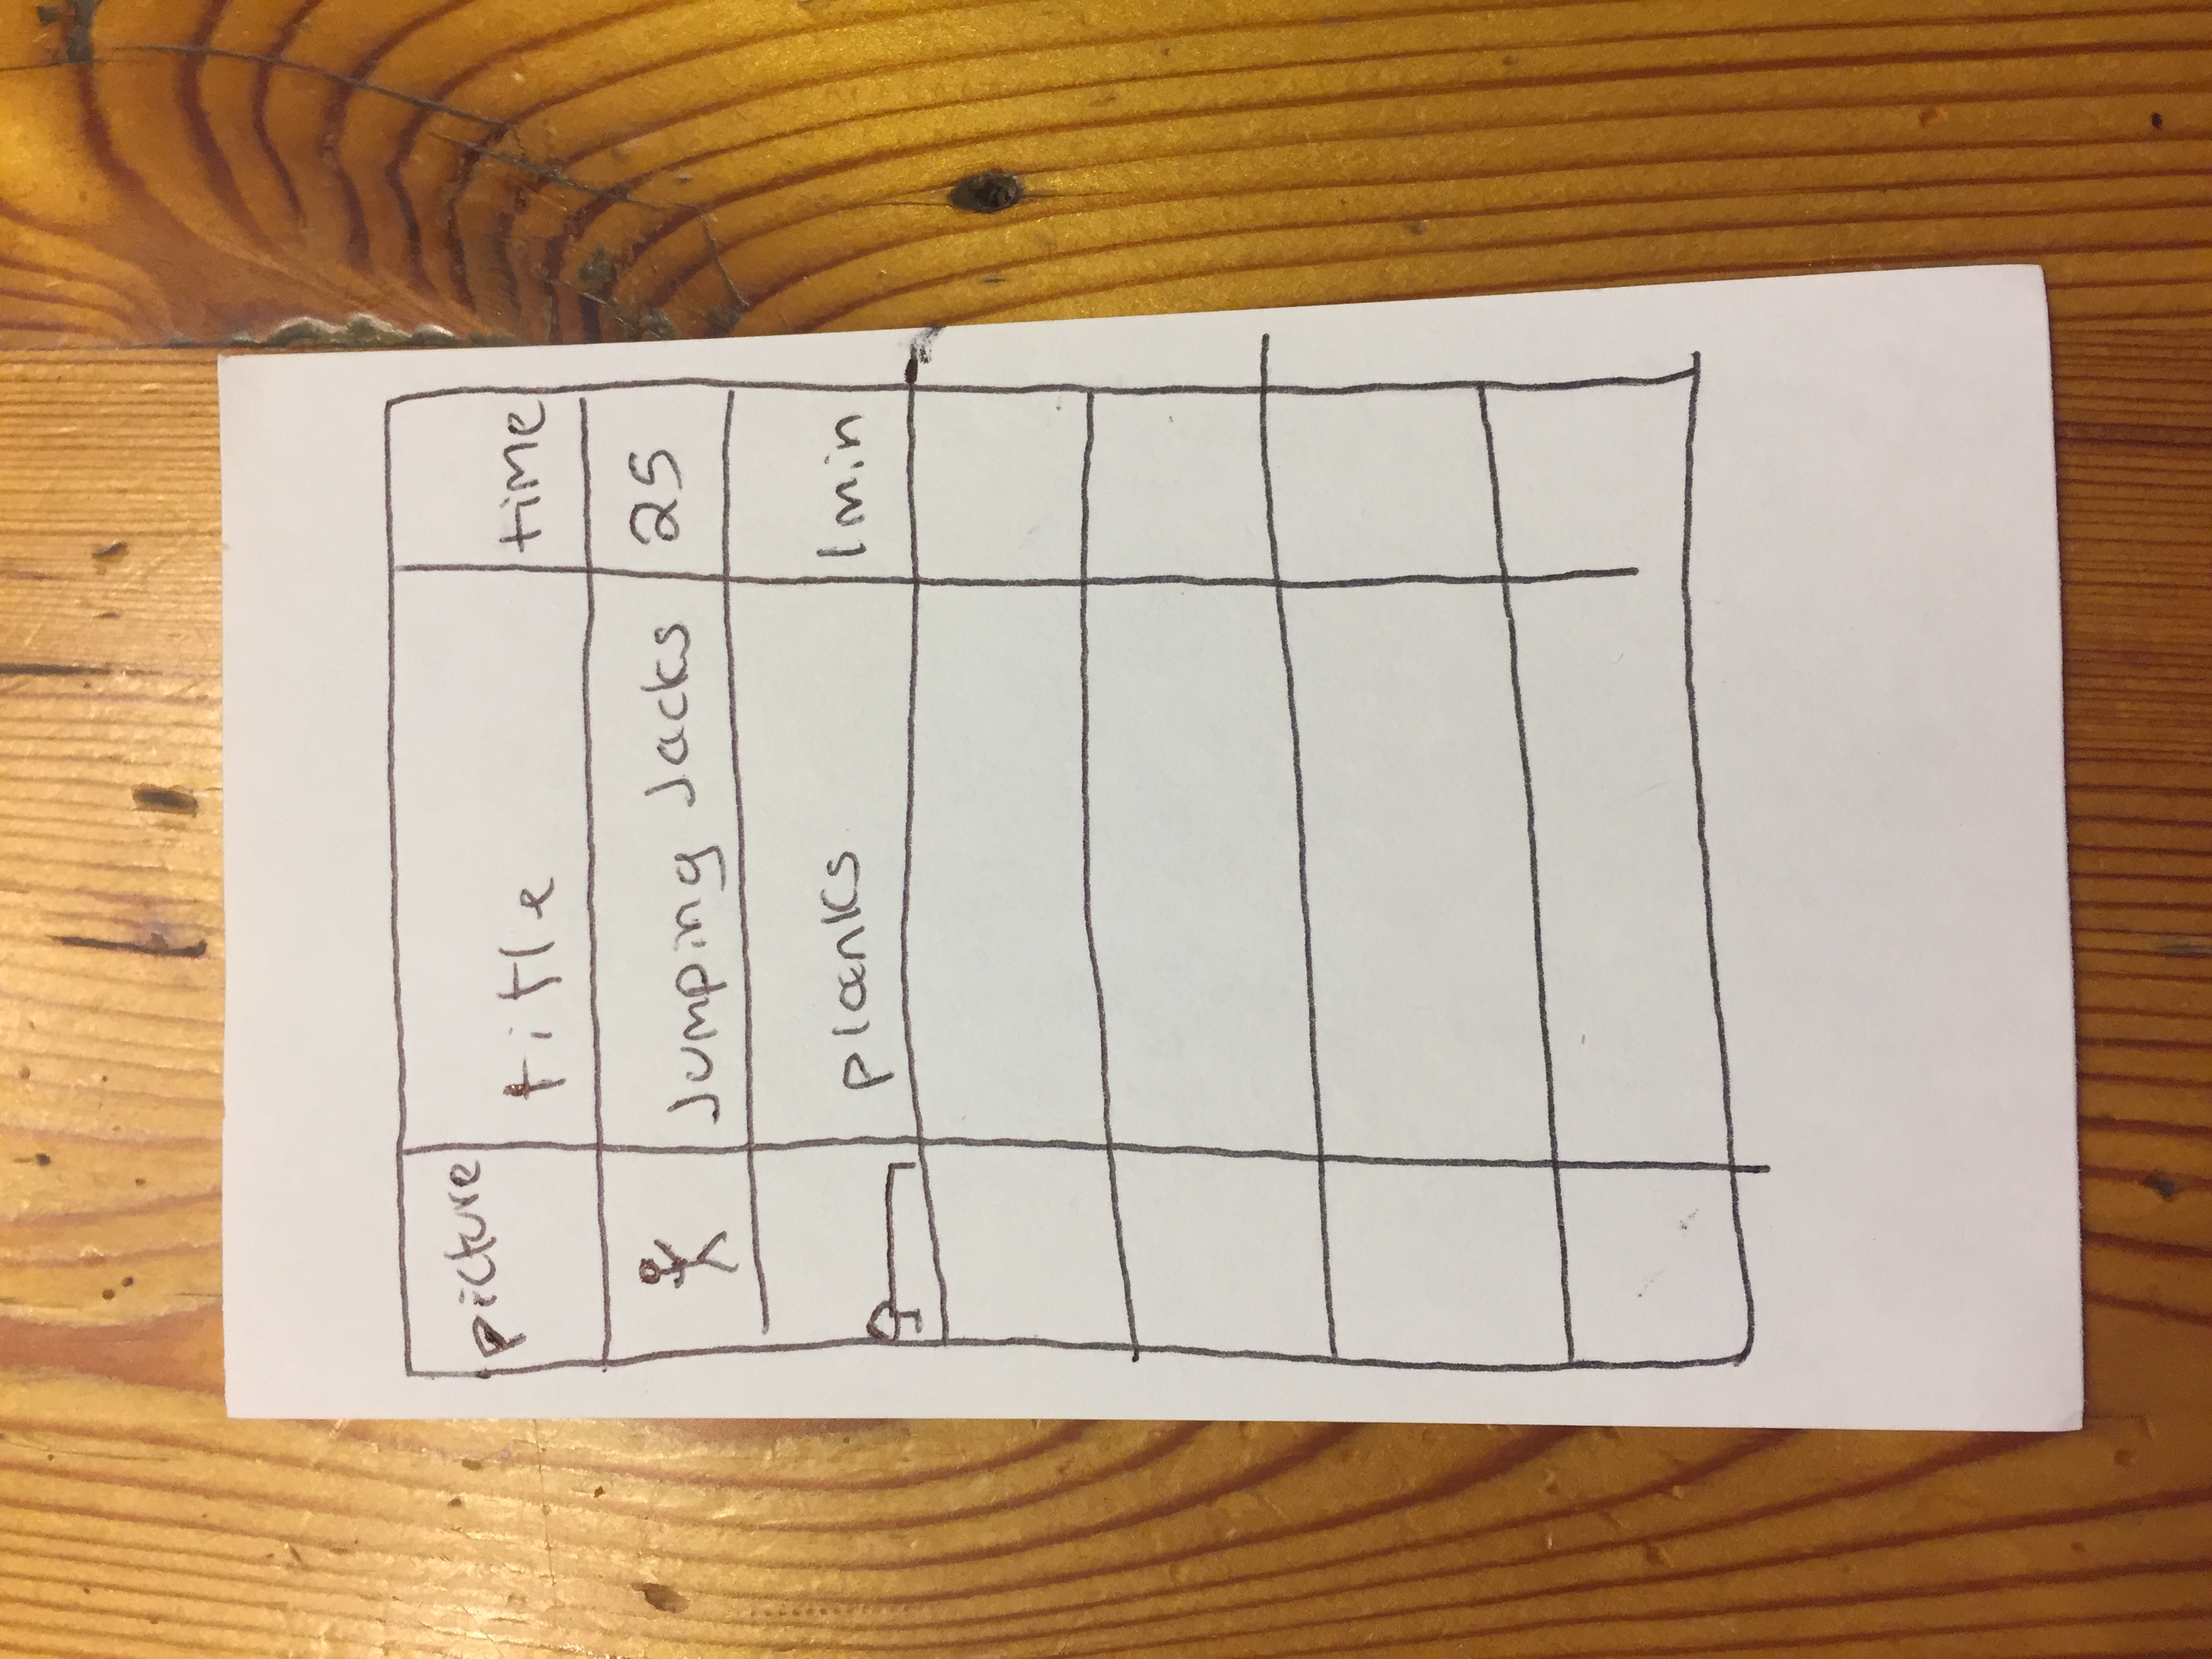 picture title time
Jumping Jacks 25
planks 1min